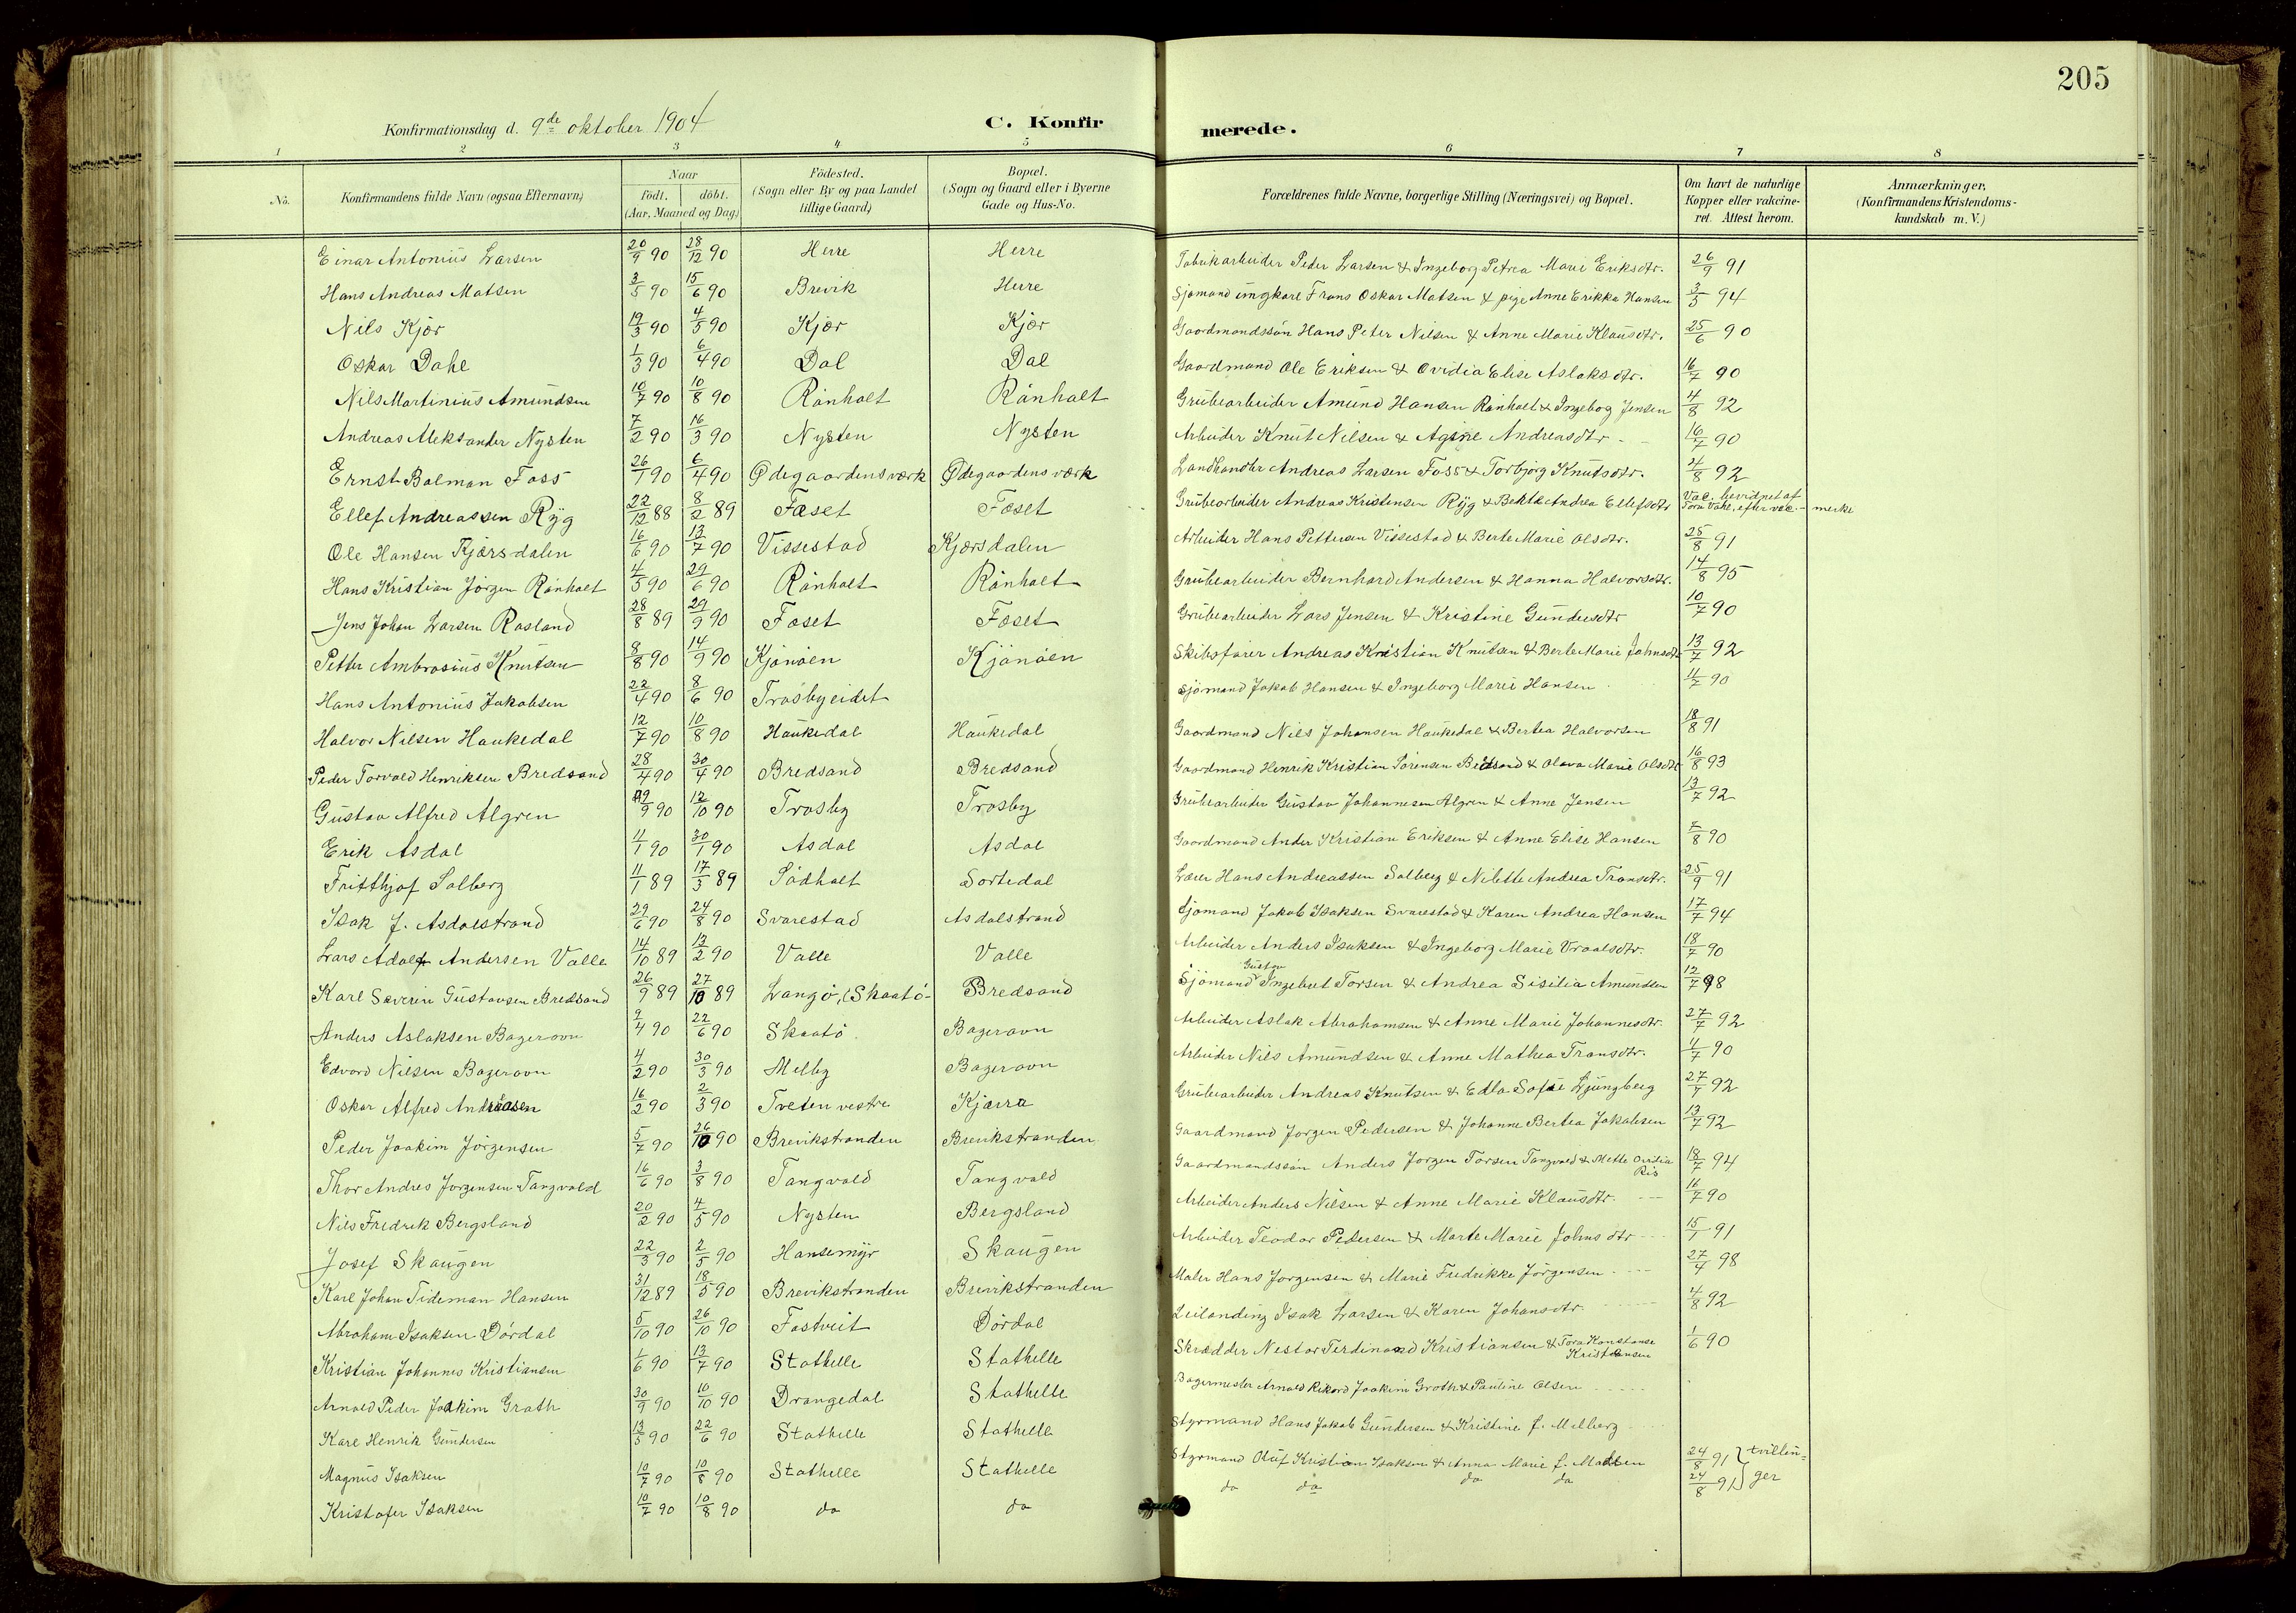 205
Konfirmationsdag d. 9de oktober 1904 C. Konfirmerede.
1 2 3 4 5 6 7 8
No. Konfirmandens fulde Navn (ogsaa Efternavn) Naar født. døbt. (Aar, Maaned og Dag) Födested. (Sogn eller By og paa Landet tillige Gaard) Bopæl. (Sogn og Gaard eller i Byerne Gade og Hus-No. Forældrenes fulde Navne, borgerlige Stilling (Næringsvei) og Bopæl. Om havt de naturlige Kopper eller vakcineret. Attest herom. Anmærkninger, (Konfirmandens Kristendomskundskab m. V.)
Einar Antonius Larsen 20/9 90 28/12 90 Herre Herre Fabrikarbeider Peder Larsen & Ingeborg Petrea Marie Eriksdtr. 26/9 91
Hans Andreas Matsen 3/5 90 15/6 90 Brevik Herre Sjømand ungkarl Frans Oskar Matsen & pige Anne Erikka Hansen 3/5 94
Nils Kjær 19/3 90 4/5 90 Kjær Kjær Gaardmandssøn Hans Peter Nilsen & Anne Marie Klausdtr. 25/6 90
Oskar Dahl 1/3 90 6/4 90 Dal Dal Gaardmand Ole Eriksen & Ovidia Elise Aslaksdtr. 16/7 90
Nils Martinius Amundsen 10/7 90 10/8 90 Rånholt Rånholt Grubearbeider Amund Hansen Rånholt & Ingebog Jensen 4/8 92
Andreas Aleksander Nysten 7/2 90 16/3 90 Nysten Nysten Arbeider Knut Nilsen & Agine Andreasdtr 16/7 90
Ernst Balman Foss 26/1 90 6/4 90 Ødegaardensværk Ødegaardensværk Landhandlr Andreas Larsen Foss & Torbjørg Knutsdtr. 4/8 92
Ellef Andreassen Ryg 22/12 88 8/2 89 Fæset Fæset Grubearbeider Andreas Kristensen Ryg & Berthe Andrea Ellefsdtr Vac. bevidnet af Tora Dahl, efter vac.-merke
Ole Hansen Kjærsdalen 16/6 90 13/7 90 Vissestad Kjærsdalen Arbeider Hans Pettersen Vissestad & Berte Marie Olsdtr. 25/8 91
Hans Kristian Jörgen Rånholt 4/5 90 29/6 90 Rånholt Rånholt Grubearbeider Bernhard Andersen & Hanna Halvorsdtr. 14/8 95
Jens Johan Larsen Rasland 28/8 89 29/9 90 Fæset Fæset Grubearbeider Lars Jensen & Kristine Gundersdtr 10/7 90
Petter Ambrosius Knutsen 8/8 90 14/9 90 Kjönöen Kjönöen Skibsfører Andreas Kristian Knutsen & Berte Marie Johnsdtr 13/7 92
Hans Antonius Jakobsen 22/4 90 8/6 90 Trosbyeidet Sjømand Jakob Hansen & Ingeborg Marie Hansen 11/7 90
Halvor Nilsen Haukedal 12/7 90 10/8 90 Haukedal Haukedal Gaardmand Nils Johansen Haukedal & Bertea Halvorsen 18/8 91
Peder Torvald Henriksen Bredsand 28/4 90 30/4 90 Bredsand Bredsand Gaardmand Henrik Kristian Sörensen Bredsand & Olava Marie Olsdtr 16/8 93
Gustav Alfred Algren 9/9 90 12/10 90 Trosby Trosby Grubearbeider Gustav Johannesen Algren & Anne Jensen 13/7 92
Erik Asdal 11/1 90 30/1 90 Asdal Asdal Gaardmand Ander Kristian Eriksen & Anne Elise Hansen 7/8 90
Fritthjof Solberg 11/1 89 17/3 89 Södholt Sortedal Lærer Hans Andreassen Solberg & Nilette Andrea Fransdtr. 25/9 91
Isak J. Asdalstrand 29/6 90 24/8 90 Svarestad Asdalstrand Sjømand Jakob Isaksen Svarestad & Karen Andrea Hansen 17/7 94
Lars Adolf Andersen Valle 14/10 89 12/2 90 Valle Valle Arbeider Anders Isaksen & Ingeborg Marie Vraalsdtr. 18/7 90
Karl Severin Gustavsen Bredsand 26/9 89 27/10 89 Langö, (Skaatö- Bredsand Sjömand Gustav Ingebret Torsen & Andrea Sisilia Amundsen 12/7 98
Anders Aslaksen Bagerovn 9/4 90 22/6 90 Skaatö Bagerovn Arbeider Aslak Abrahamsen & Anne Marie Johannesdtr. 27/7 92
Edvard Nilsen Bagerovn 4/2 90 30/3 90 Melby Bagerovn Arbeider Nils Amundsen & Anne Mathea Fransdtr. 11/7 90
Oskar Alfred Andreasen 16/2 90 2/3 90 Tveten vestre Kjærra Grubearbeider Andreas Knutsen & Edla Sofie Ljungberg 27/7 92
Peder Joakim Jörgensen 5/7 90 26/10 90 Brevikstranden Brevikstranden Gaardmand Jorgen Pedersen & Johanne Bertea Jakobsen 13/7 92
Thor Andres Jorgensen Tangvald 16/6 90 3/8 90 Tangvald Tangvald Gaardmandssön Anders Jorgen Torsen Tangvald & Mette Ovidia Ris 18/7 94
Nils Fredrik Bergsland 20/2 90 4/5 90 Nysten Bergsland Arbeider Anders Nilsen & Anne Marie Klausdtr. 16/7 90
Josef Skaugen 22/3 90 2/5 90 Hansemyr Skaugen Arbeider Teodor Pedersen & Marte Marie Johnsdtr 15/1 91
Karl Johan Tideman Hansen 31/12 89 18/5 90 Brevikstranden Brevikstranden Maler Hans Jorgensen & Marie Fredrikke Jörgensen 27/4 98
Abraham Isaksen Dördal 5/10 90 26/10 90 Fostveit Dördal Leilending Isak Larsen & Karen Johansdtr. 4/8 92
Kristian Johannes Kristiansen 1/6 90 13/7 90 Stathelle Stathelle Skrædder Nestor Ferdinand Kristiansen & Tora Konstanse Kristensen 1/6 90
Arnold Peder Joakim Groth 30/9 90 10/10 90 Drangedal Stathelle Bagermester Arnold Rikard Joakim Groth & Pauline Olsen
Karl Henrik Gundersen 13/5 90 22/6 90 Stathelle Stathelle Styrmand Hans Jakob Gundersen & Kristine f. Melberg
Magnus Isaksen 10/7 90 10/8 90 Stathelle Stathelle Styrmand Oluf Kristian Isaksen & Anna Marie f. Madsen 24/8 91 tvillin-
Kristofer Isaksen 10/7 90 10/8 90 do do do do do do 24/8 91 ger